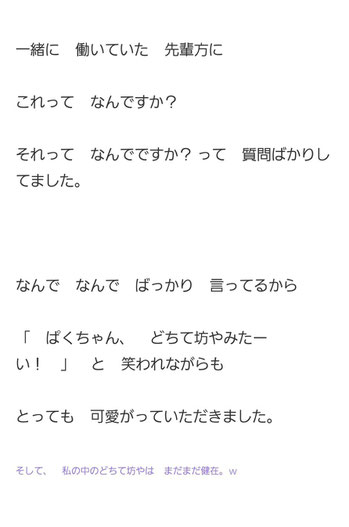 一緒に　働いていた　先輩方に
これって　なんですか？
それって　なんでですか？ って　質問ばかりし
てました。
なんで　なんで　ばっかり　言ってるから
「　ぱくちゃん、　どちて坊やみたー
い！　」　と　笑われながらも
とっても　可愛がっていただきました。
そして、　私の中のどちて坊やは　まだまだ健在。w